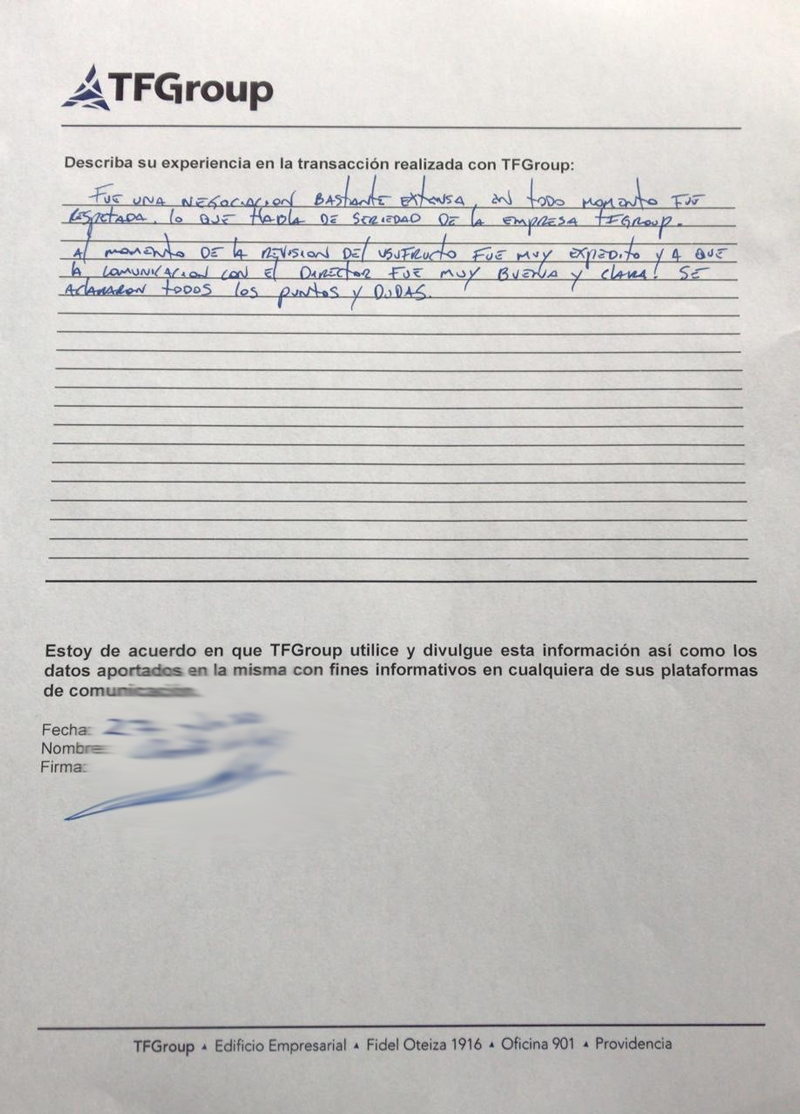 TFGroup
Describa su experiencia en la transacción realizada con TFGroup:
FUE UNA NEGOCIACION BASTANTE EXTENSA, EN TODO MOMENTO FUE
RESPETADA, LO QUE HABLA DE SERIEDAD DE LA EMPRESA TFGROUP.
AL MOMENTO DE LA REVISION DEL USUFRUCTO FUE MUY EXPEDITO Y A QUE
LA COMUNICACION CON EL DIRECTOR FUE MUY BUENA Y CLARA! SE
ACLARARON TODOS LOS PUNTOS Y DUDAS.
Estoy de acuerdo en que TFGroup utilice y divulgue esta información así como los
datos aportados en la misma con fines informativos en cualquiera de sus plataformas
de comunicación.
Fecha:
Nombre:
Firma:
TFGroup ▲ Edificio Empresarial ▲ Fidel Oteiza 1916 ▲ Oficina 901 ▲ Providencia